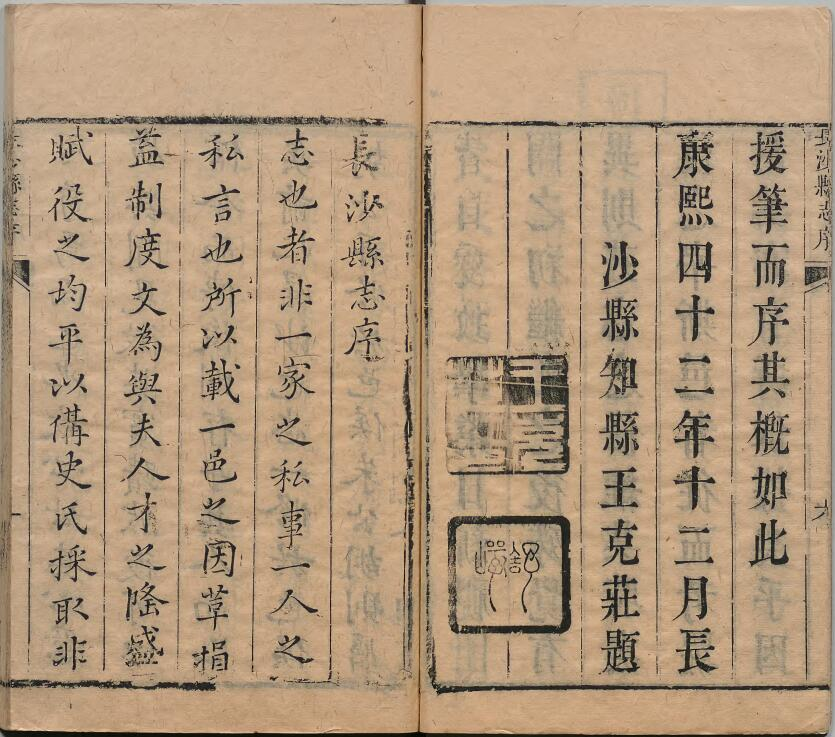 長沙縣志序
援筆而序其概如此
康熙四十二年十二月長
沙縣知縣王克莊題
長沙縣志序
志也者非一家之私事一人之
私言也所以載一邑之因革損
益制度文為與夫人才之隆盛
賦役之均平以備史氏採取非
縣志序
一